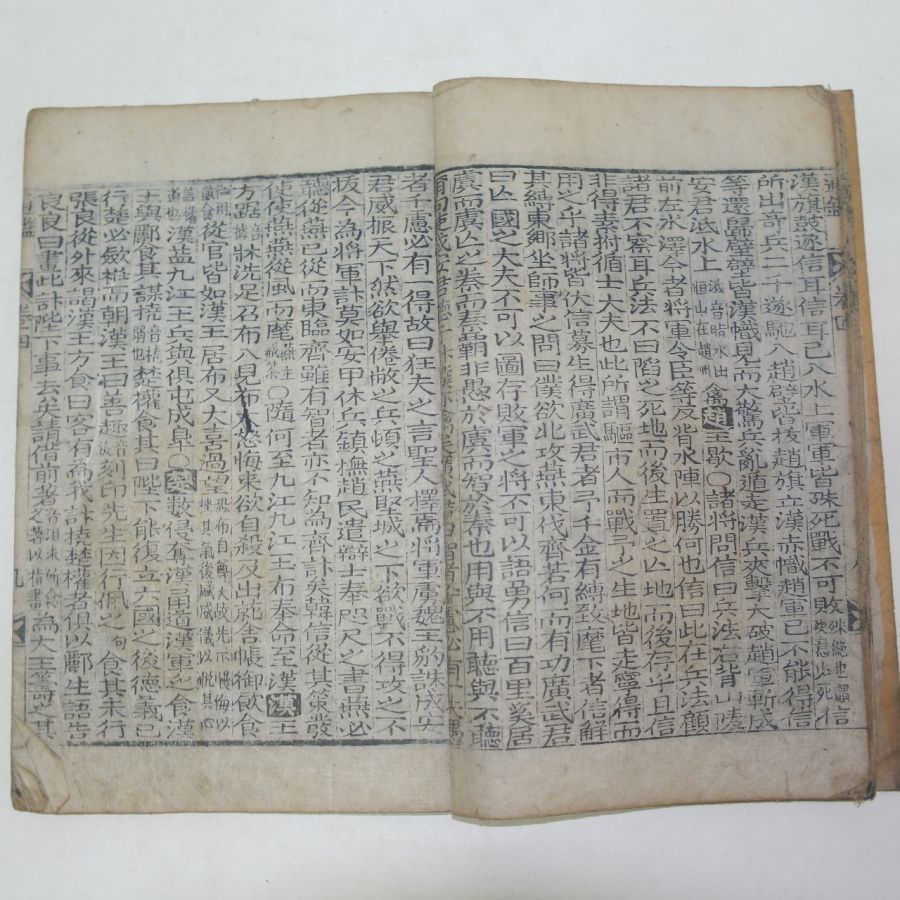 漢旗鼓逐信耳信耳已入水上軍軍皆殊死戰不可敗殊絶也謂決意必死信
所出奇兵二千遂馳入趙壁皆拔趙旗立漢赤幟趙軍已不能得信
等還歸壁壁皆漢幟見而大驚兵亂遁走漢兵夾擊大破趙軍斬成
安君泜水上泜音時水出恒山在趙州禽趙王歇○諸將問信曰兵法右背山陵
前左水澤今者將軍令臣等反背水陣以勝何也信曰此在兵法顧
諸君不察耳兵法不曰陷之死地而後生置之亡地而後存乎且信
非得素拊循士大夫也此所謂驅市人而戰予之生地皆走寧得而
用之乎諸將皆伏信募生得廣武君者予千金有縛致麾下者信解
其縛東鄉坐師事之問曰僕欲北攻燕東伐齊若何而有功廣武君
曰亡國之大夫不可以圖存敗軍之將不可以語勇信曰百里奚居
虞而虞亡之秦而秦霸非愚於虞而智於秦也用與不用聽與不聽
者千慮必有一得故曰狂夫之言聖人擇焉將軍虜魏王豹誅成安
君威振天下然欲舉倦敝之兵頓之燕堅城之下欲戰不得攻之不
拔今為將軍計莫如安甲休兵鎮撫趙民遣辯士奉咫尺之書燕必
聽從燕已從而東臨齊雖有智者亦不知為齊計矣韓信從其策發
使使燕燕從風而靡燕王臧荼○隨何至九江九江王布奉命至漢漢王
方踞牀洗足召布入見布怒悔來欲自殺及出就舍帳御飲食
從官皆如漢王居布又大喜過望恐布自尊大故先示慢侮以挫其氣後
漢益九江王兵與俱屯成臯○楚數侵奪漢甬道漢軍乏食漢
王與酈食其謀撓楚權食其曰陛下能復立六國之後德義已
行楚必斂衽而朝漢王曰善趣刻印先生因行佩之句食其未行
張良從外來謁漢王方食曰客有為我計撓楚權者俱以酈生語告
良良曰畫此計陛下事去矣請借前箸為大王籌之其
卷四
九